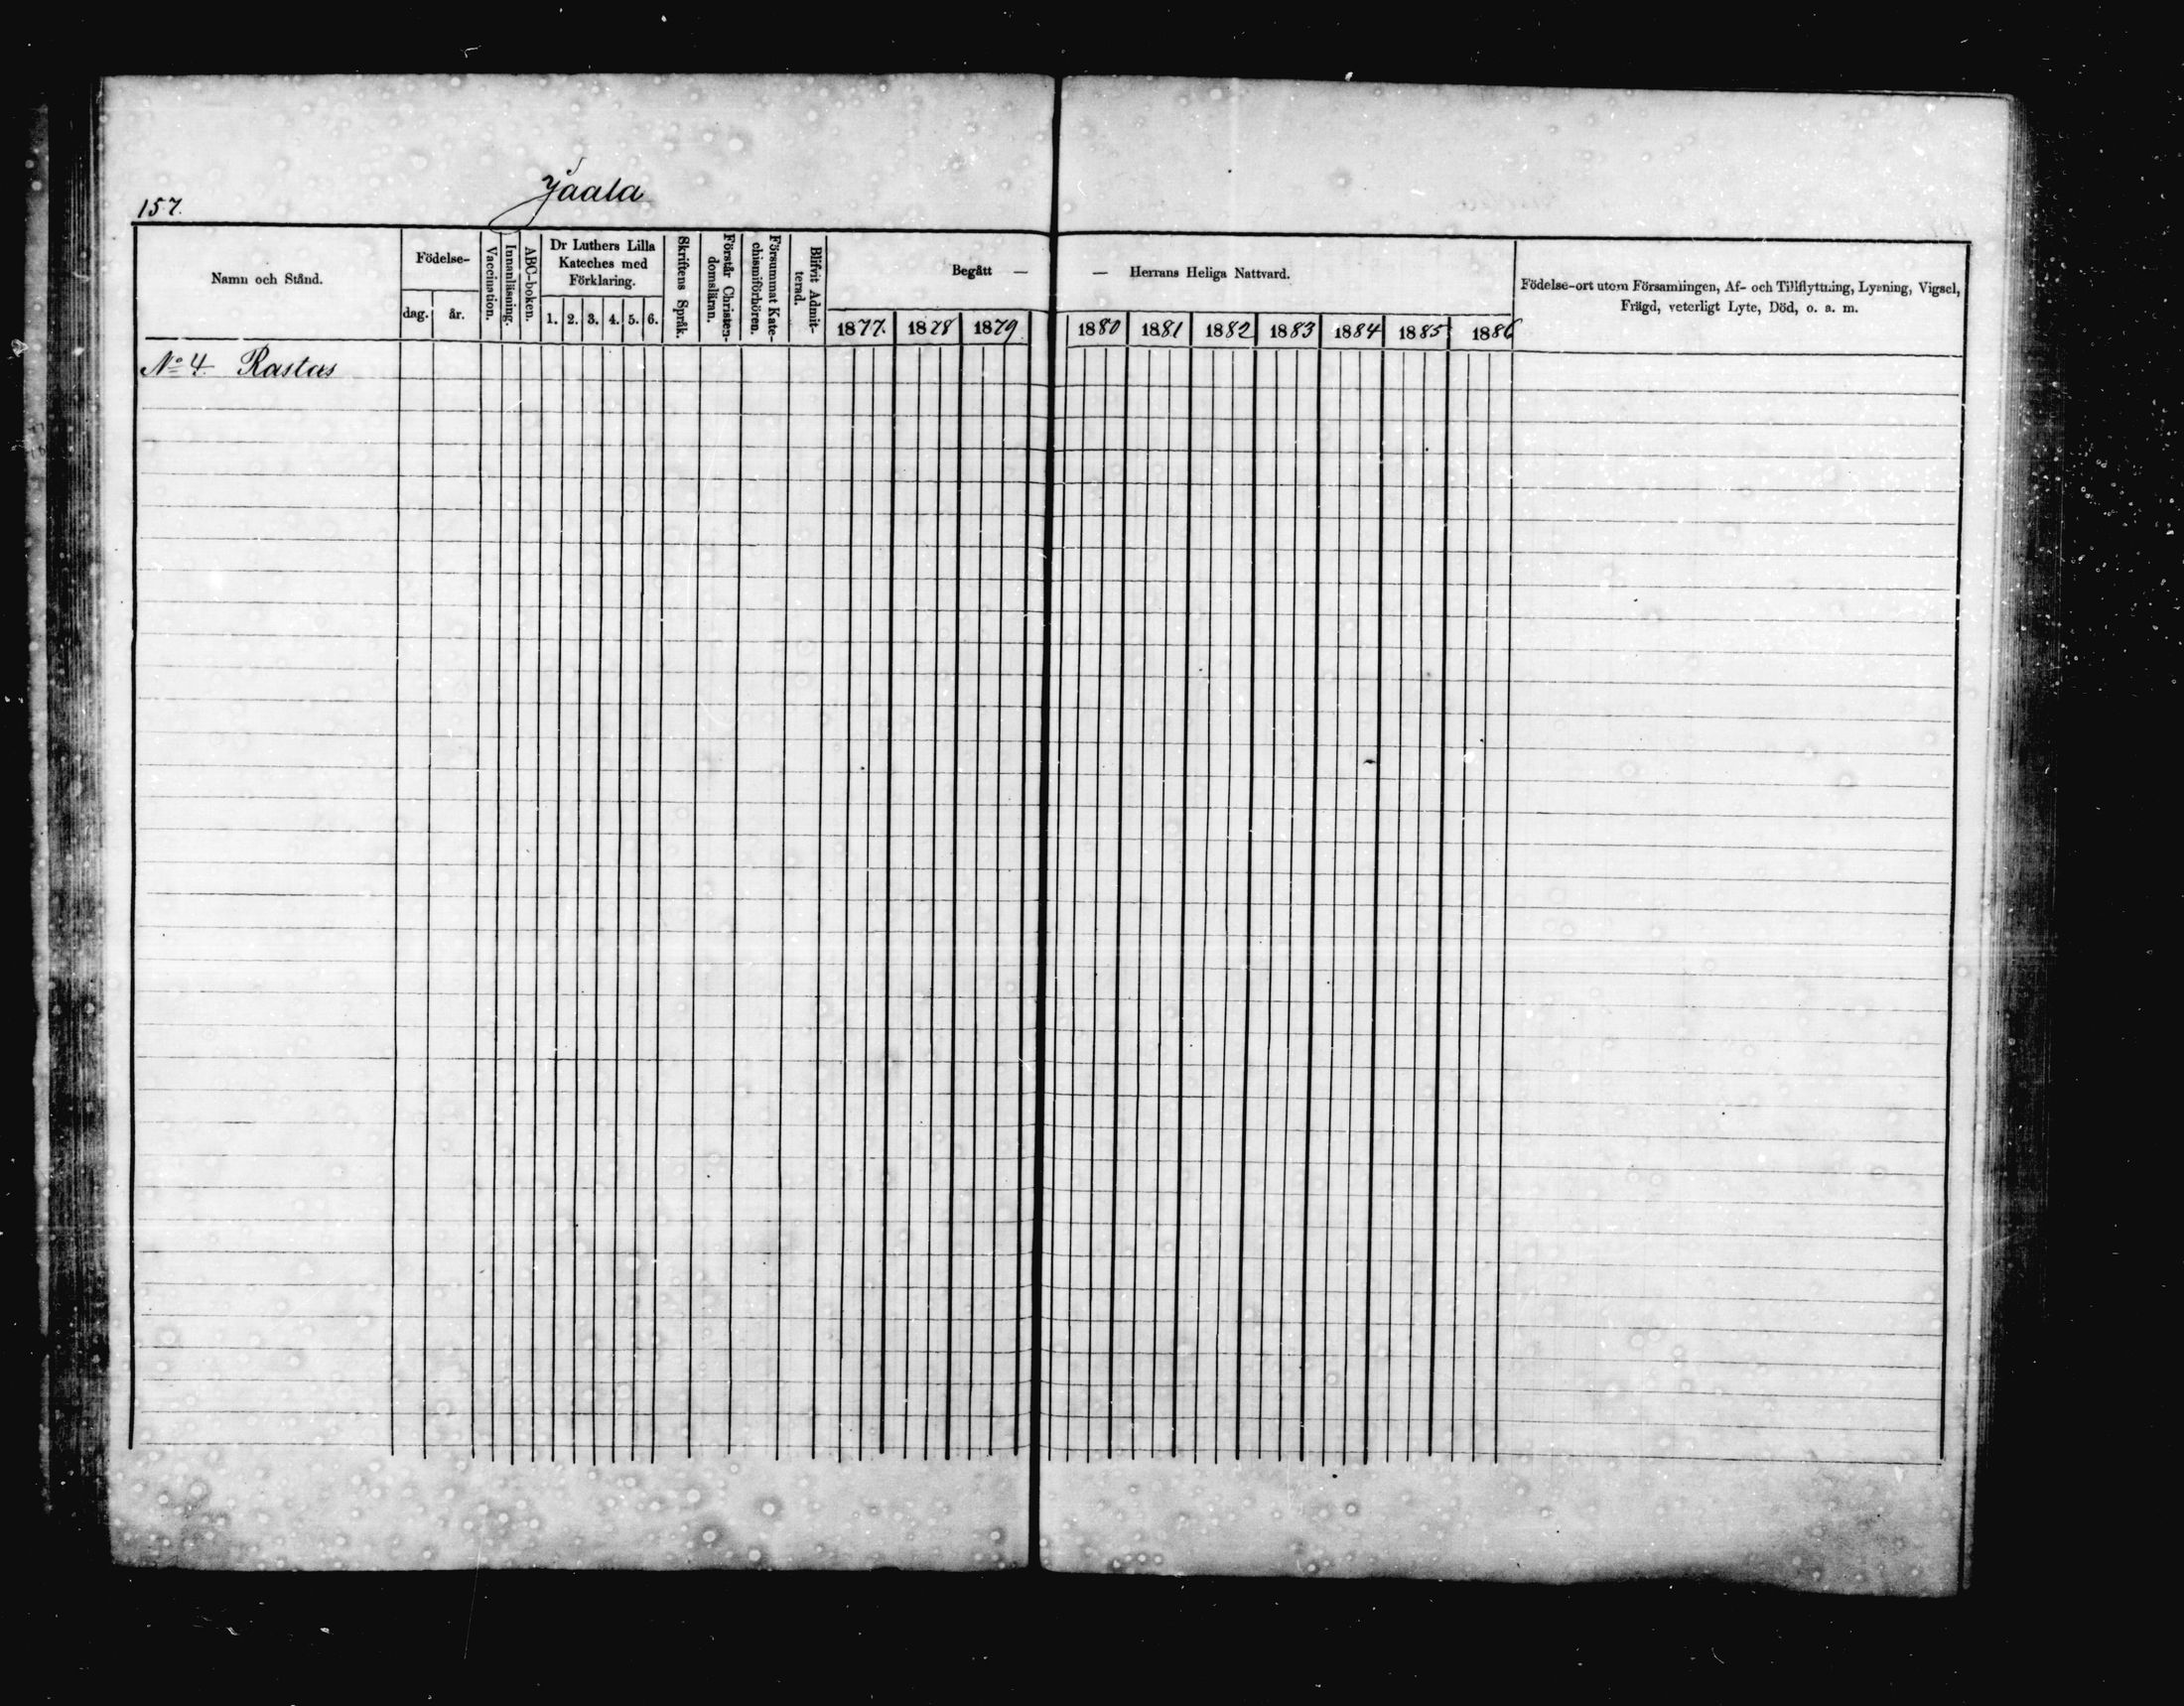 157.
Jaala
Namn och Stånd.
Födelse-
dag.
år.
Vaccination.
Innanläsning.
ABC-boken.
Dr Luthers Lilla
Kateches med
Förklaring.
1. 2. 3. 4. 5. 6.
Skriftens Språk.
Förstår Christen-
domsläran.
Försummat Kate-
chismiförhören.
Blifvit Admit-
terad.
Begått —
1877. 1878 1879
— Herrans Heliga Nattvard.
1880 1881 1882 1883 1884 1885 1886
Födelse-ort utom Församlingen, Af- och Tillflyttning, Lysning, Vigsel,
Frägd, veterligt Lyte, Död, o. s. m.
No 4. Rastas